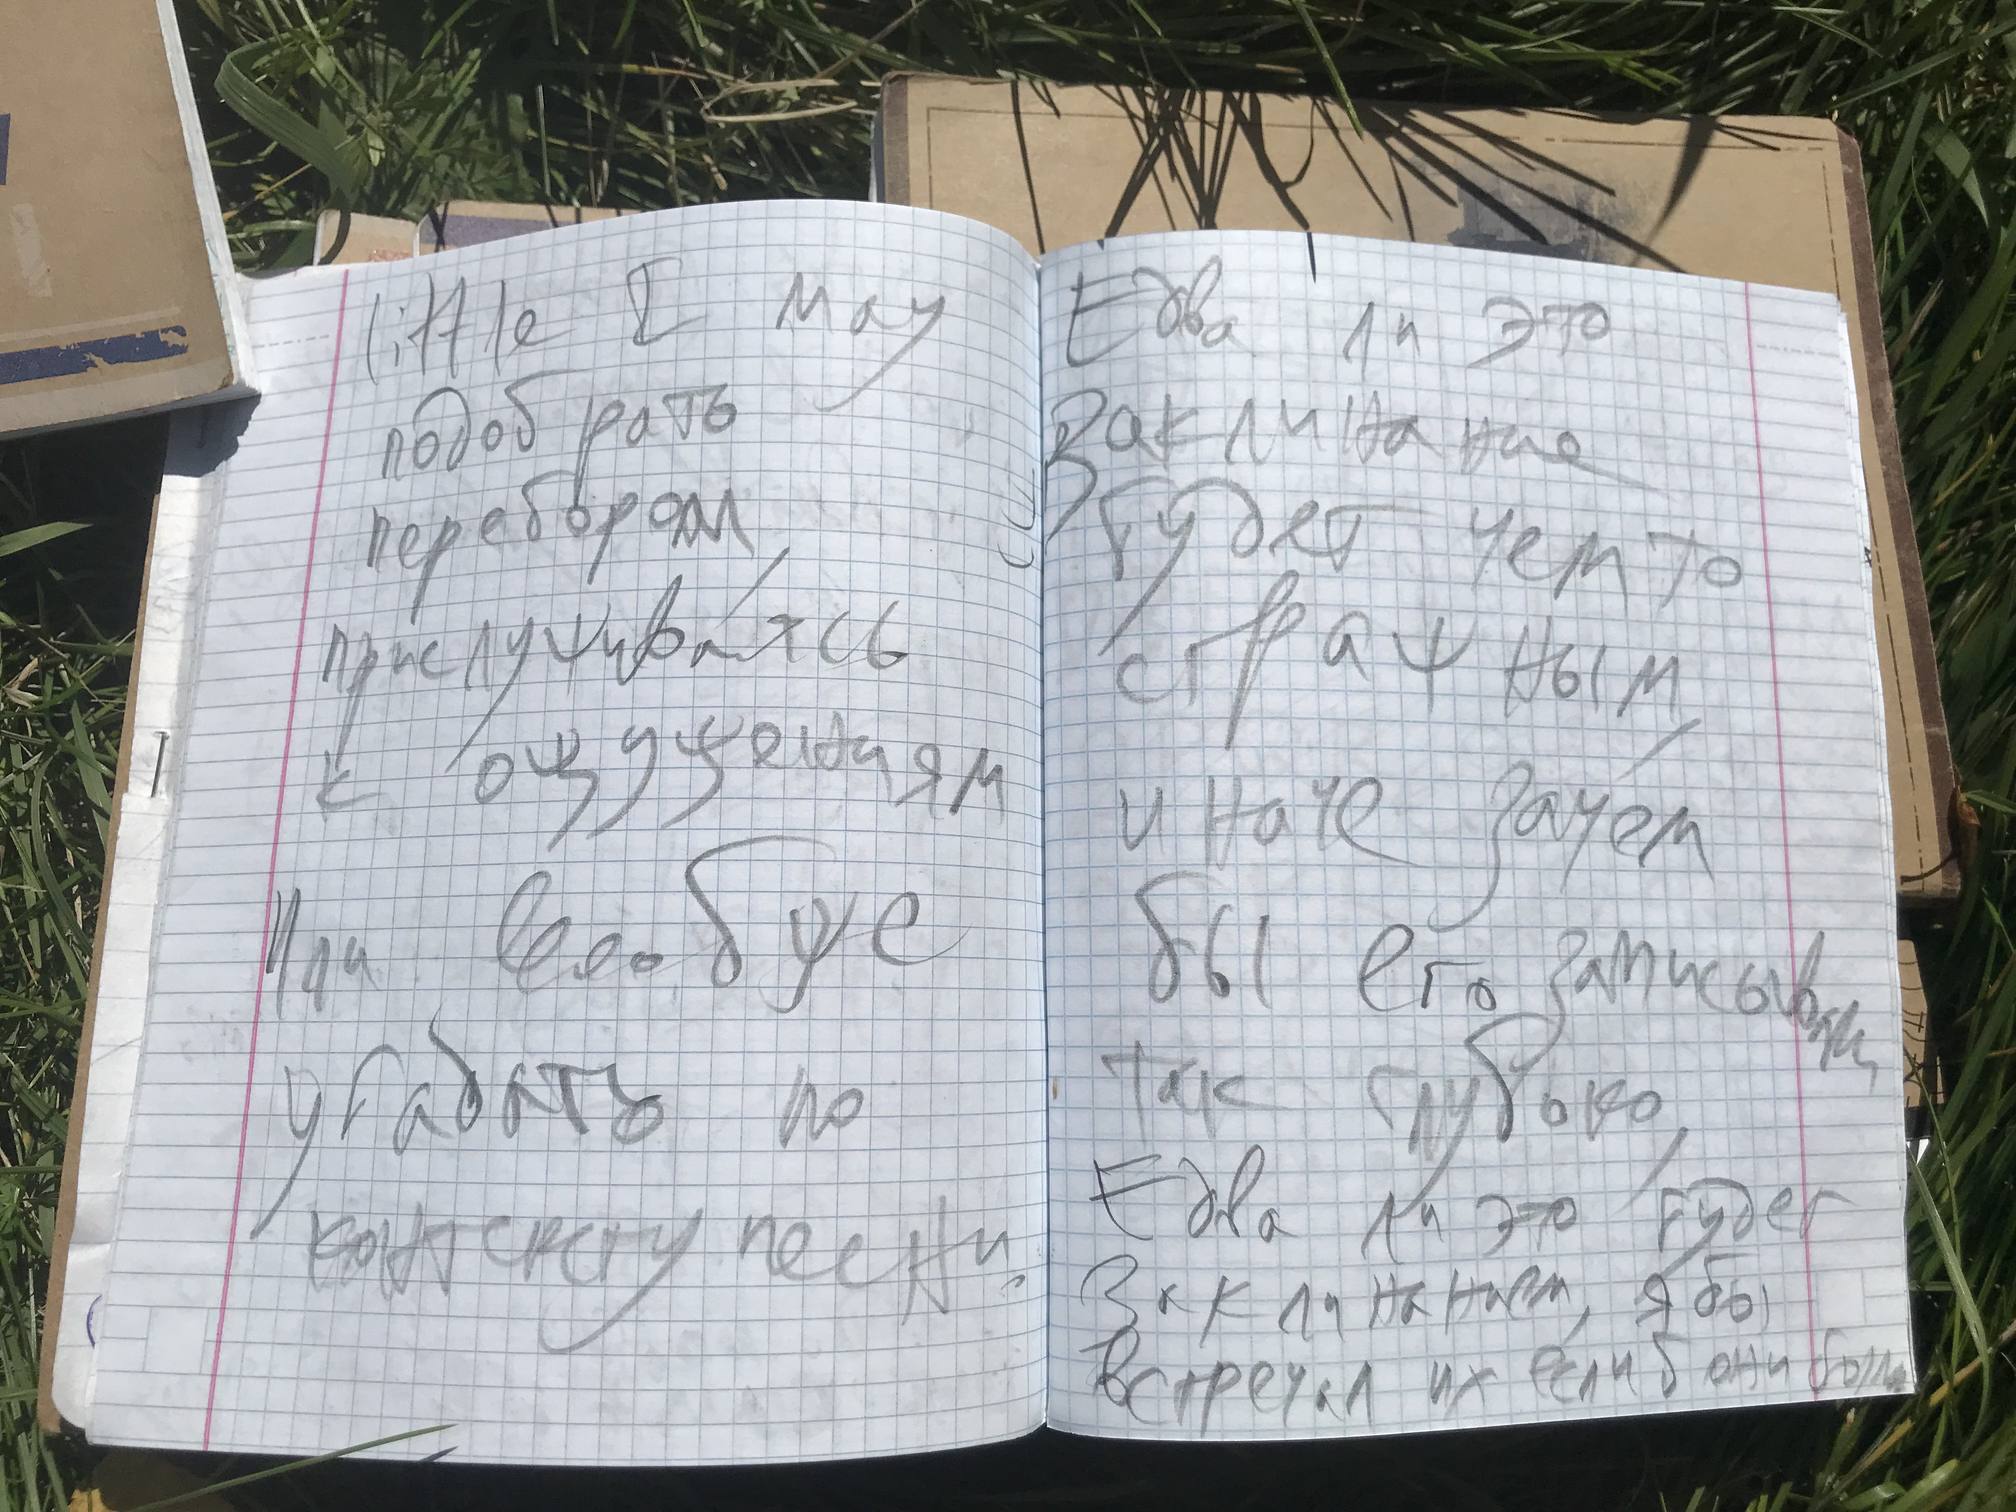 little I may
подобрать
перебором,
прислушиваясь
к ощущениям
Или вообще
угадать по
контексту песни.
Едва ли это
Заклинание
будет чем то
страшным,
иначе зачем
бы его записывали
так глубоко,
Едва ли это будет
Заклинанием, я бы
встречал их если б они были